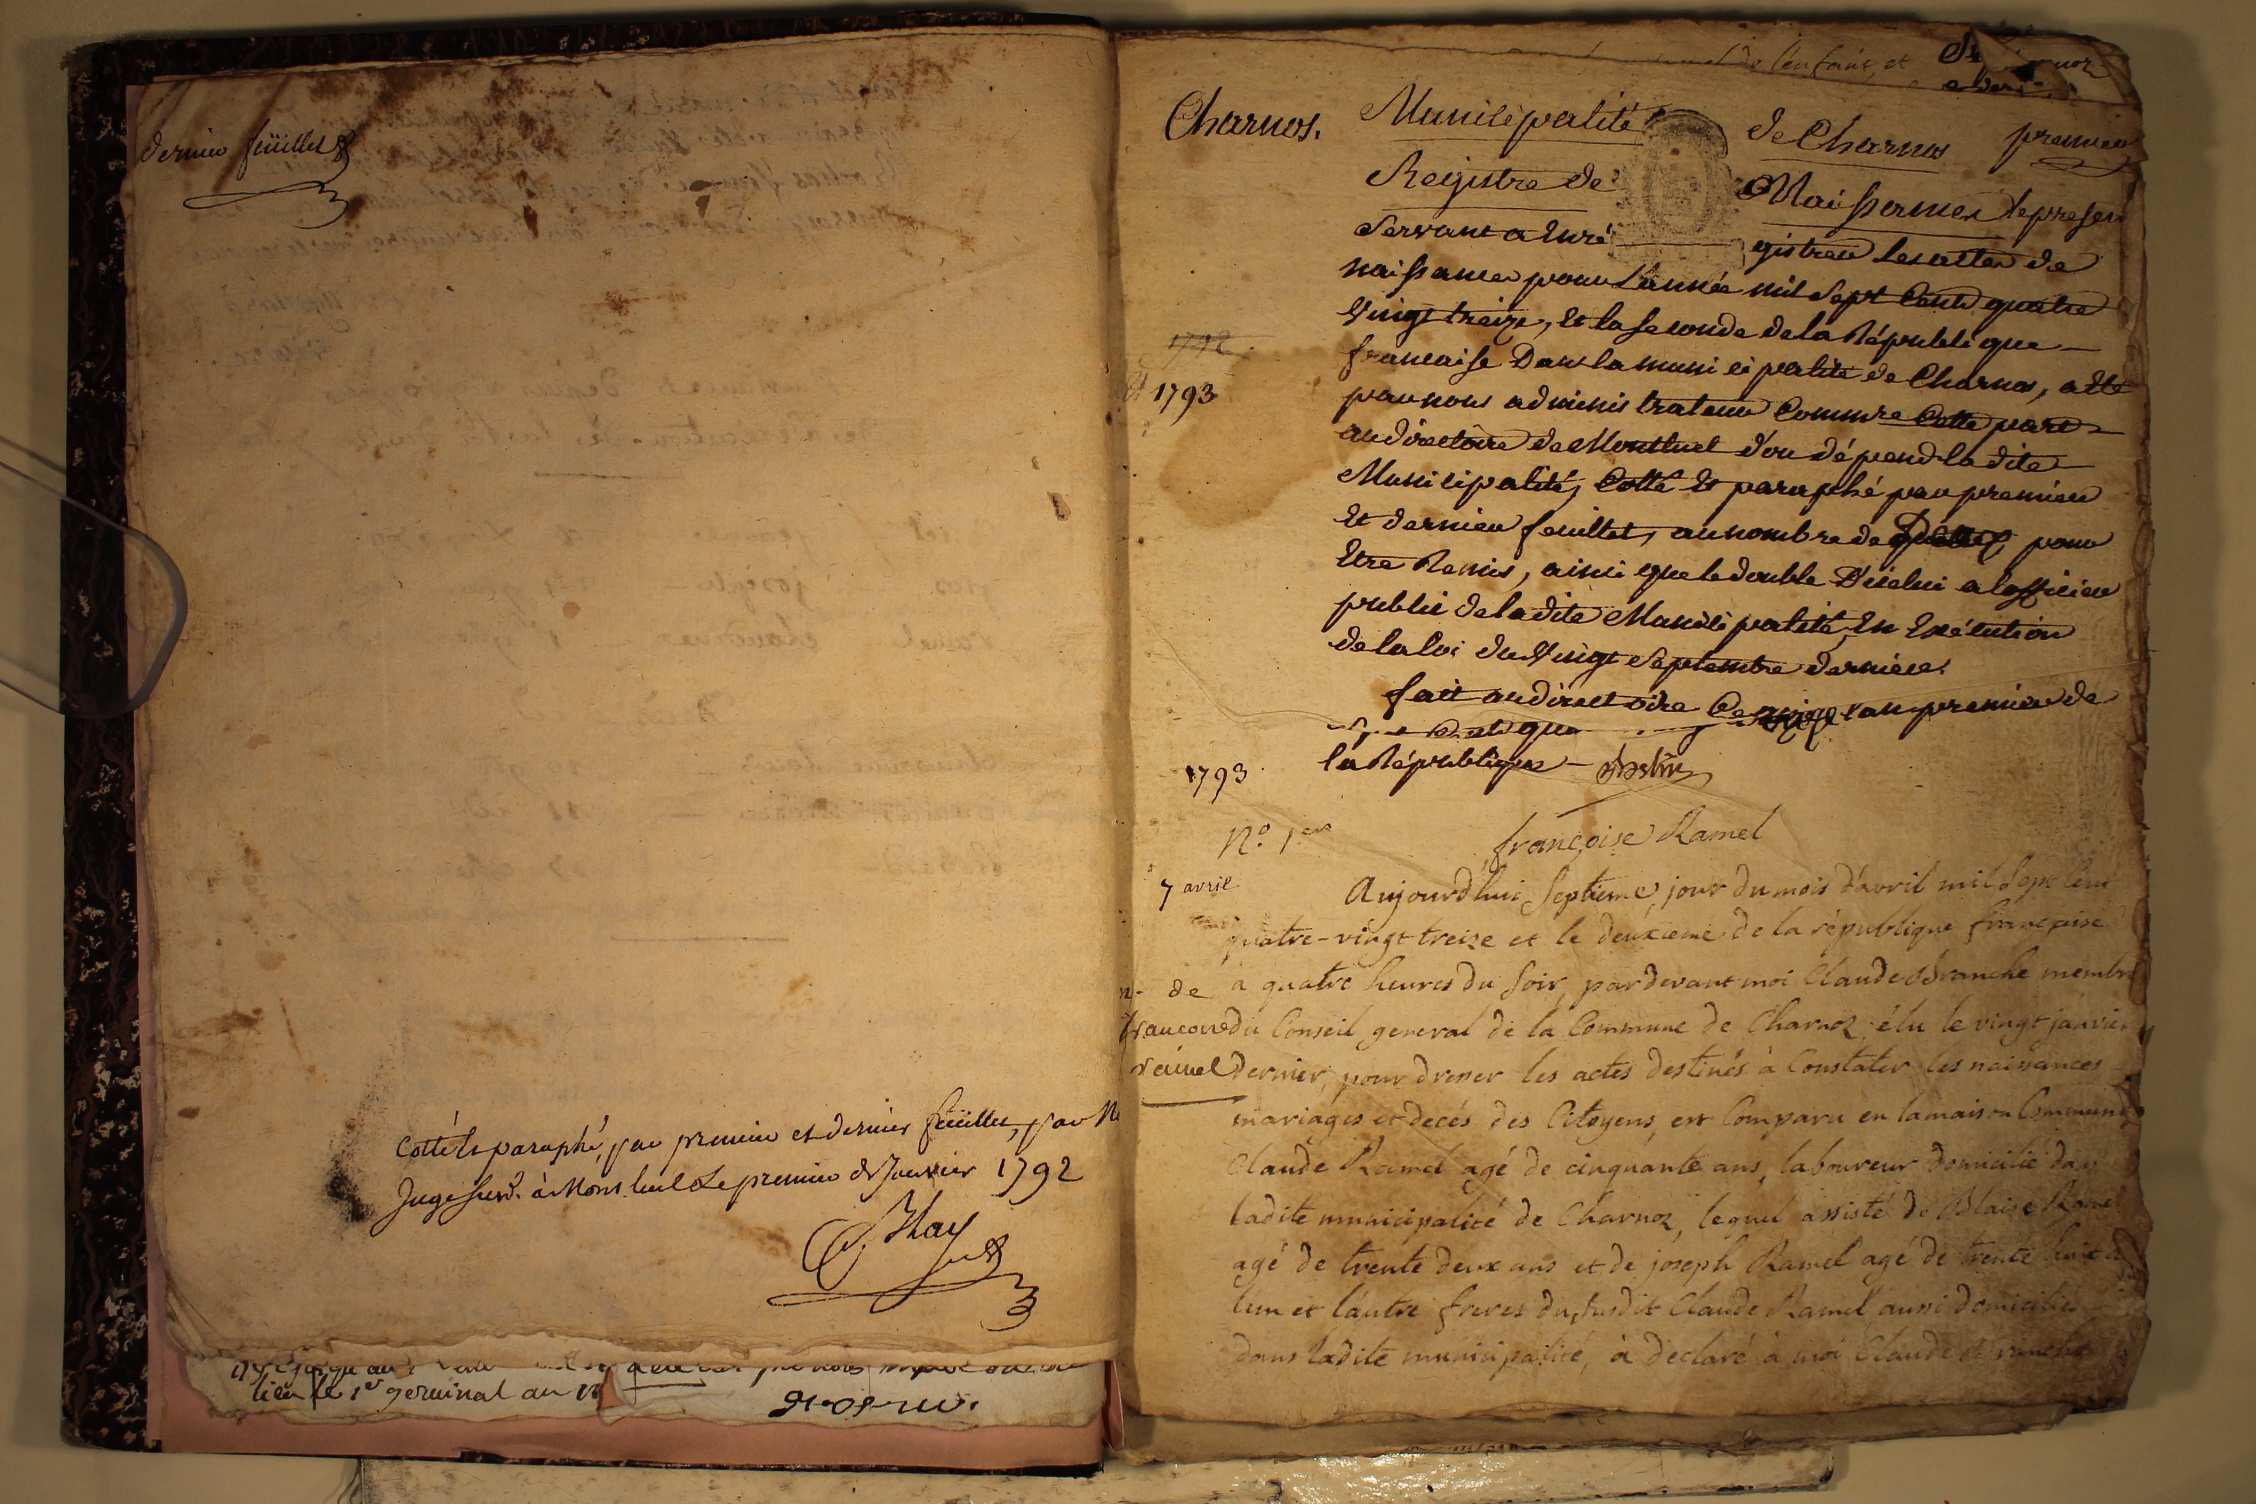 dernier feüillet
Cotté et paraphé, par premier et dernier feüillet, par N
Juge susd. à Montluel Le premier de Janvier 1792
lieu le 1er germinal an
de l'enfant, et
Charnos. Municipalité de Charnos premier
Registre de Naissances
Servant a Enré gistrer les actes de
naissances pour L'année mil Sept Cents quatre
Vingt treize, Et la Seconde de la République
francaise Dans la municipalité de Charnos, a Eté
1792
et 1793
par nous administrateur Comm̄re Cette part
au directoire de Montluel d'ou dépend la dite
Municipalité, Cotté Et paraphé par premier
Et dernier feuillet, au nombre de pour
Etre Remis, ainsi que le double D'icelui a l'officier
public de la dite Municipalité, En Exécution
de la loi du Vingt Septembre dernier.
fait au directoire Ce l'an premier de
la République
1793
N.º 1er françoise Ramel
7 avril
Aujourd'hui Septieme jour du mois d'avril mil Sept Cent
quatre-vingt treize et le deuxieme de la république française
à quatre heures du Soir, pardevant moi Claude Branche membre
n. de
francoise
rámel
du Conseil general de la Commune de Charnoz élu le vingt janvier
dernier, pour dresser les actes destinés à Constater les naissances
mariages et decés des Citoyens, est Comparu en la maison Commune
Claude Ramel agé de cinquante ans, laboureur domicilié dans
ladite municipalité de Charnoz, lequel assisté de Blaise Ramel
agé de trente deux ans et de joseph Ramel agé de trente huit
l'un et l'autre freres du susdit Claude Ramel aussi domiciliés
dans ladite municipalité, à declaré à moi Claude Branche